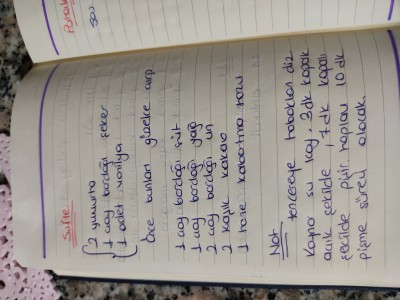 Sufle
2 yumurta
1 çay bardağı şeker
1 adet vanilya
Önce bunları güzelce çırp
1 çay bardağı süt
1 çay bardağı yağ
2 çay bardağı un
2 kaşık kakao
1 tane kabartma tozu
Not: tencereye kabakları diz
kaynar su koy. 3 dk kapak
açık şekilde, 7 dk kapalı
şekilde pişir. toplam 10 dk
pişme süresi olacak.